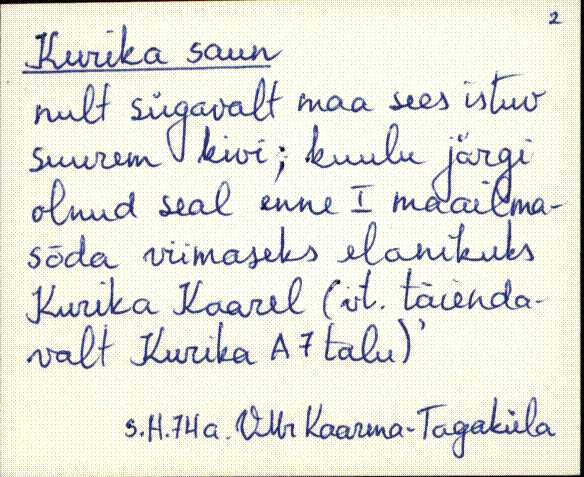 2
Kurika saun
nult sügavalt maa sees istuv
suurem kivi; kuulu järgi
olnud seal enne I maailma-
sõda viimaseks elanikuks
Kurika Kaarel (vt. täienda-
valt Kurika A7 talu)'
s.H.74a. VMr Kaarma-Tagaküla